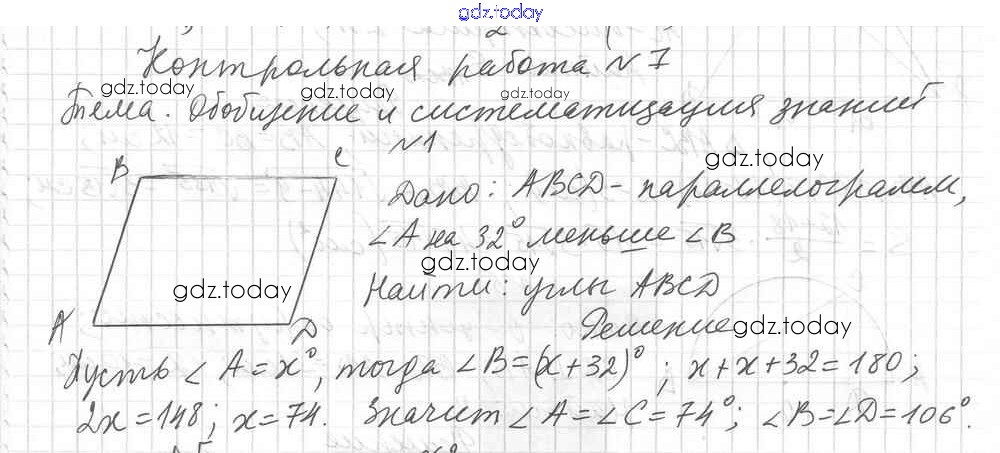 gdz.today
Контрольная работа №7
gdz.today gdz.today gdz.today
Тема. Обобщение и систематизация знаний
№1
gdz.today
B C
Дано: ABCD - параллелограмм,
∠A на 32° меньше ∠B
gdz.today
gdz.today
Найти: углы ABCD
A D
Решение
gdz.today
Пусть ∠A = x°, тогда ∠B = (x + 32)°; x + x + 32 = 180;
2x = 148; x = 74. Значит ∠A = ∠C = 74°; ∠B = ∠D = 106°.